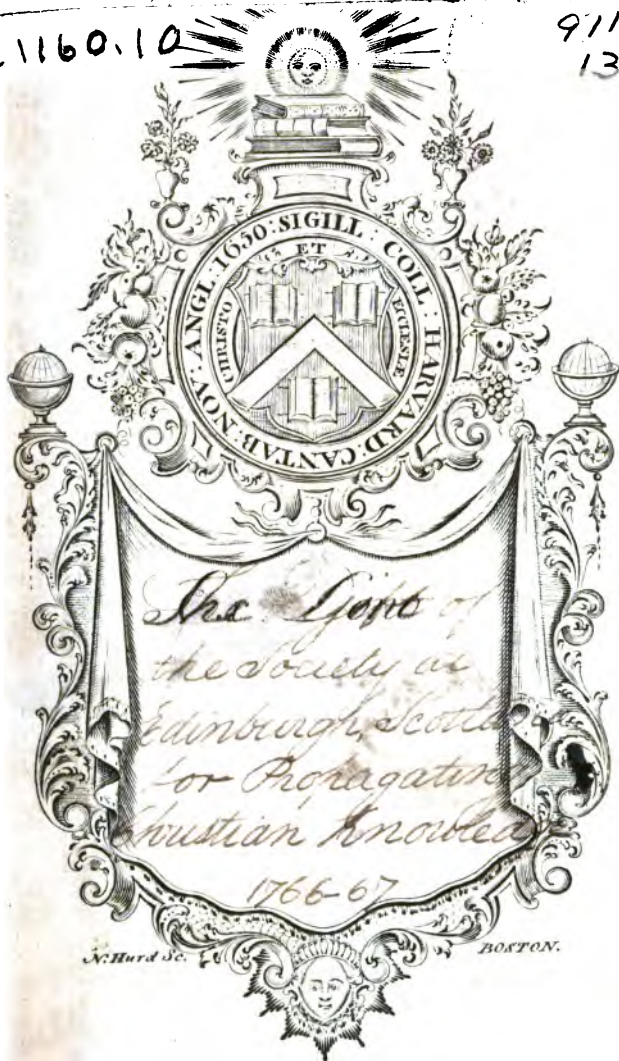 1160.10
911
13
SIGILL : COLL : HARVARD : CANTAB : NOV : ANGL : 1650 :
ET
CHRISTO
ECCLESIÆ
The Gift of
the Society at
Edinburgh, Scotla
for Propagating
Christian Knowled
1766-67
N. Hurd Sc.
BOSTON.